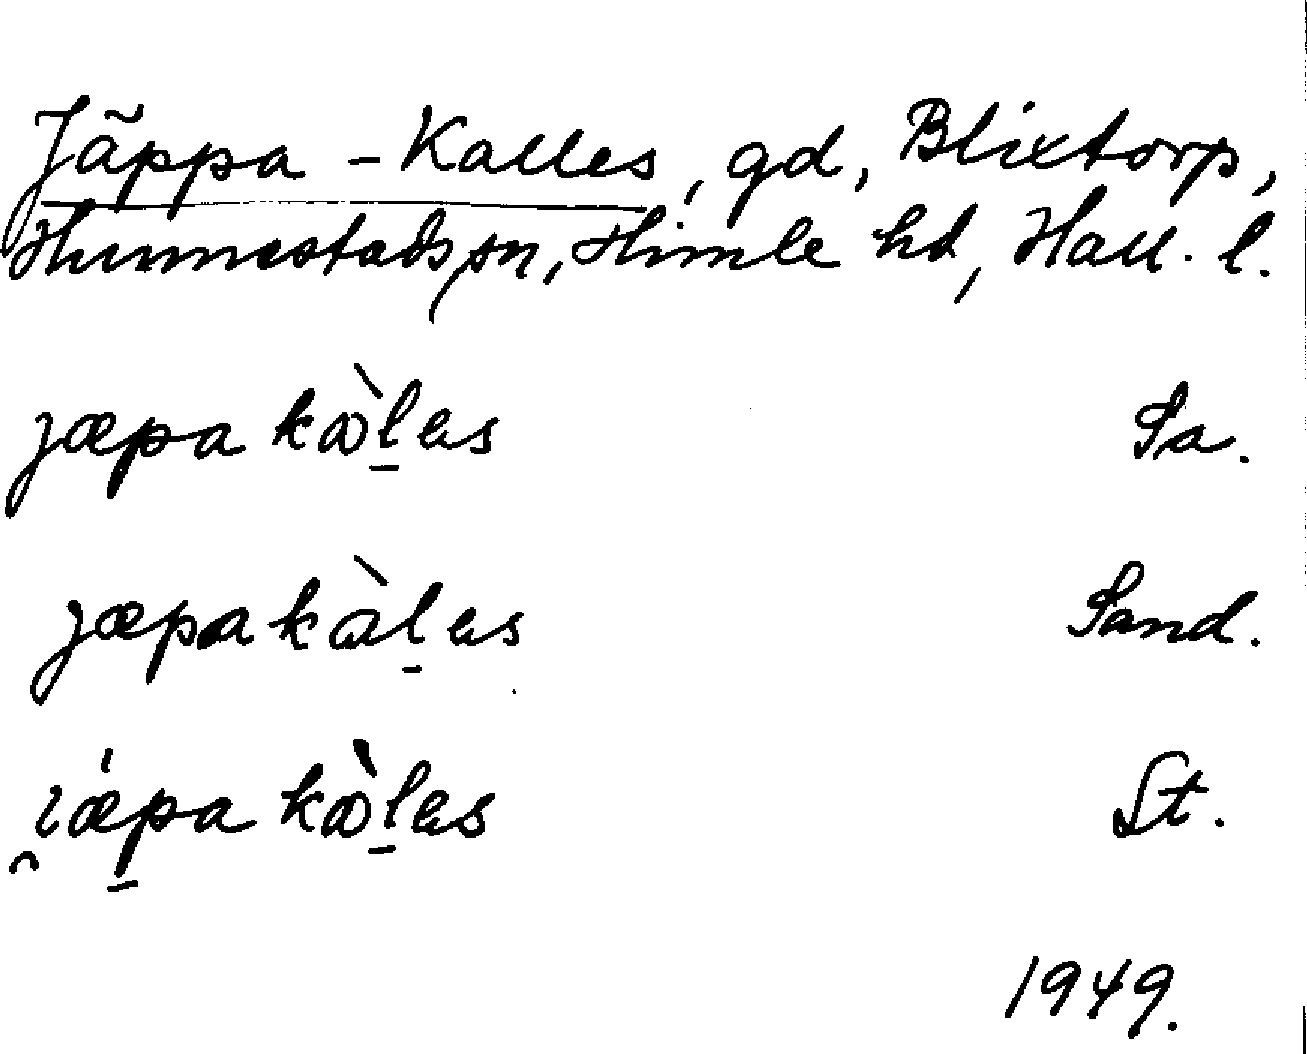 Jäppa-Kalles, gd, Blixtorp,
Hunnestads sn, Himle hd, Hall. l.
jæpa kàl̠as Sa.
jæpa kàl̠as Sand.
ı̯ǽp̠a kàl̠as St.
1949.